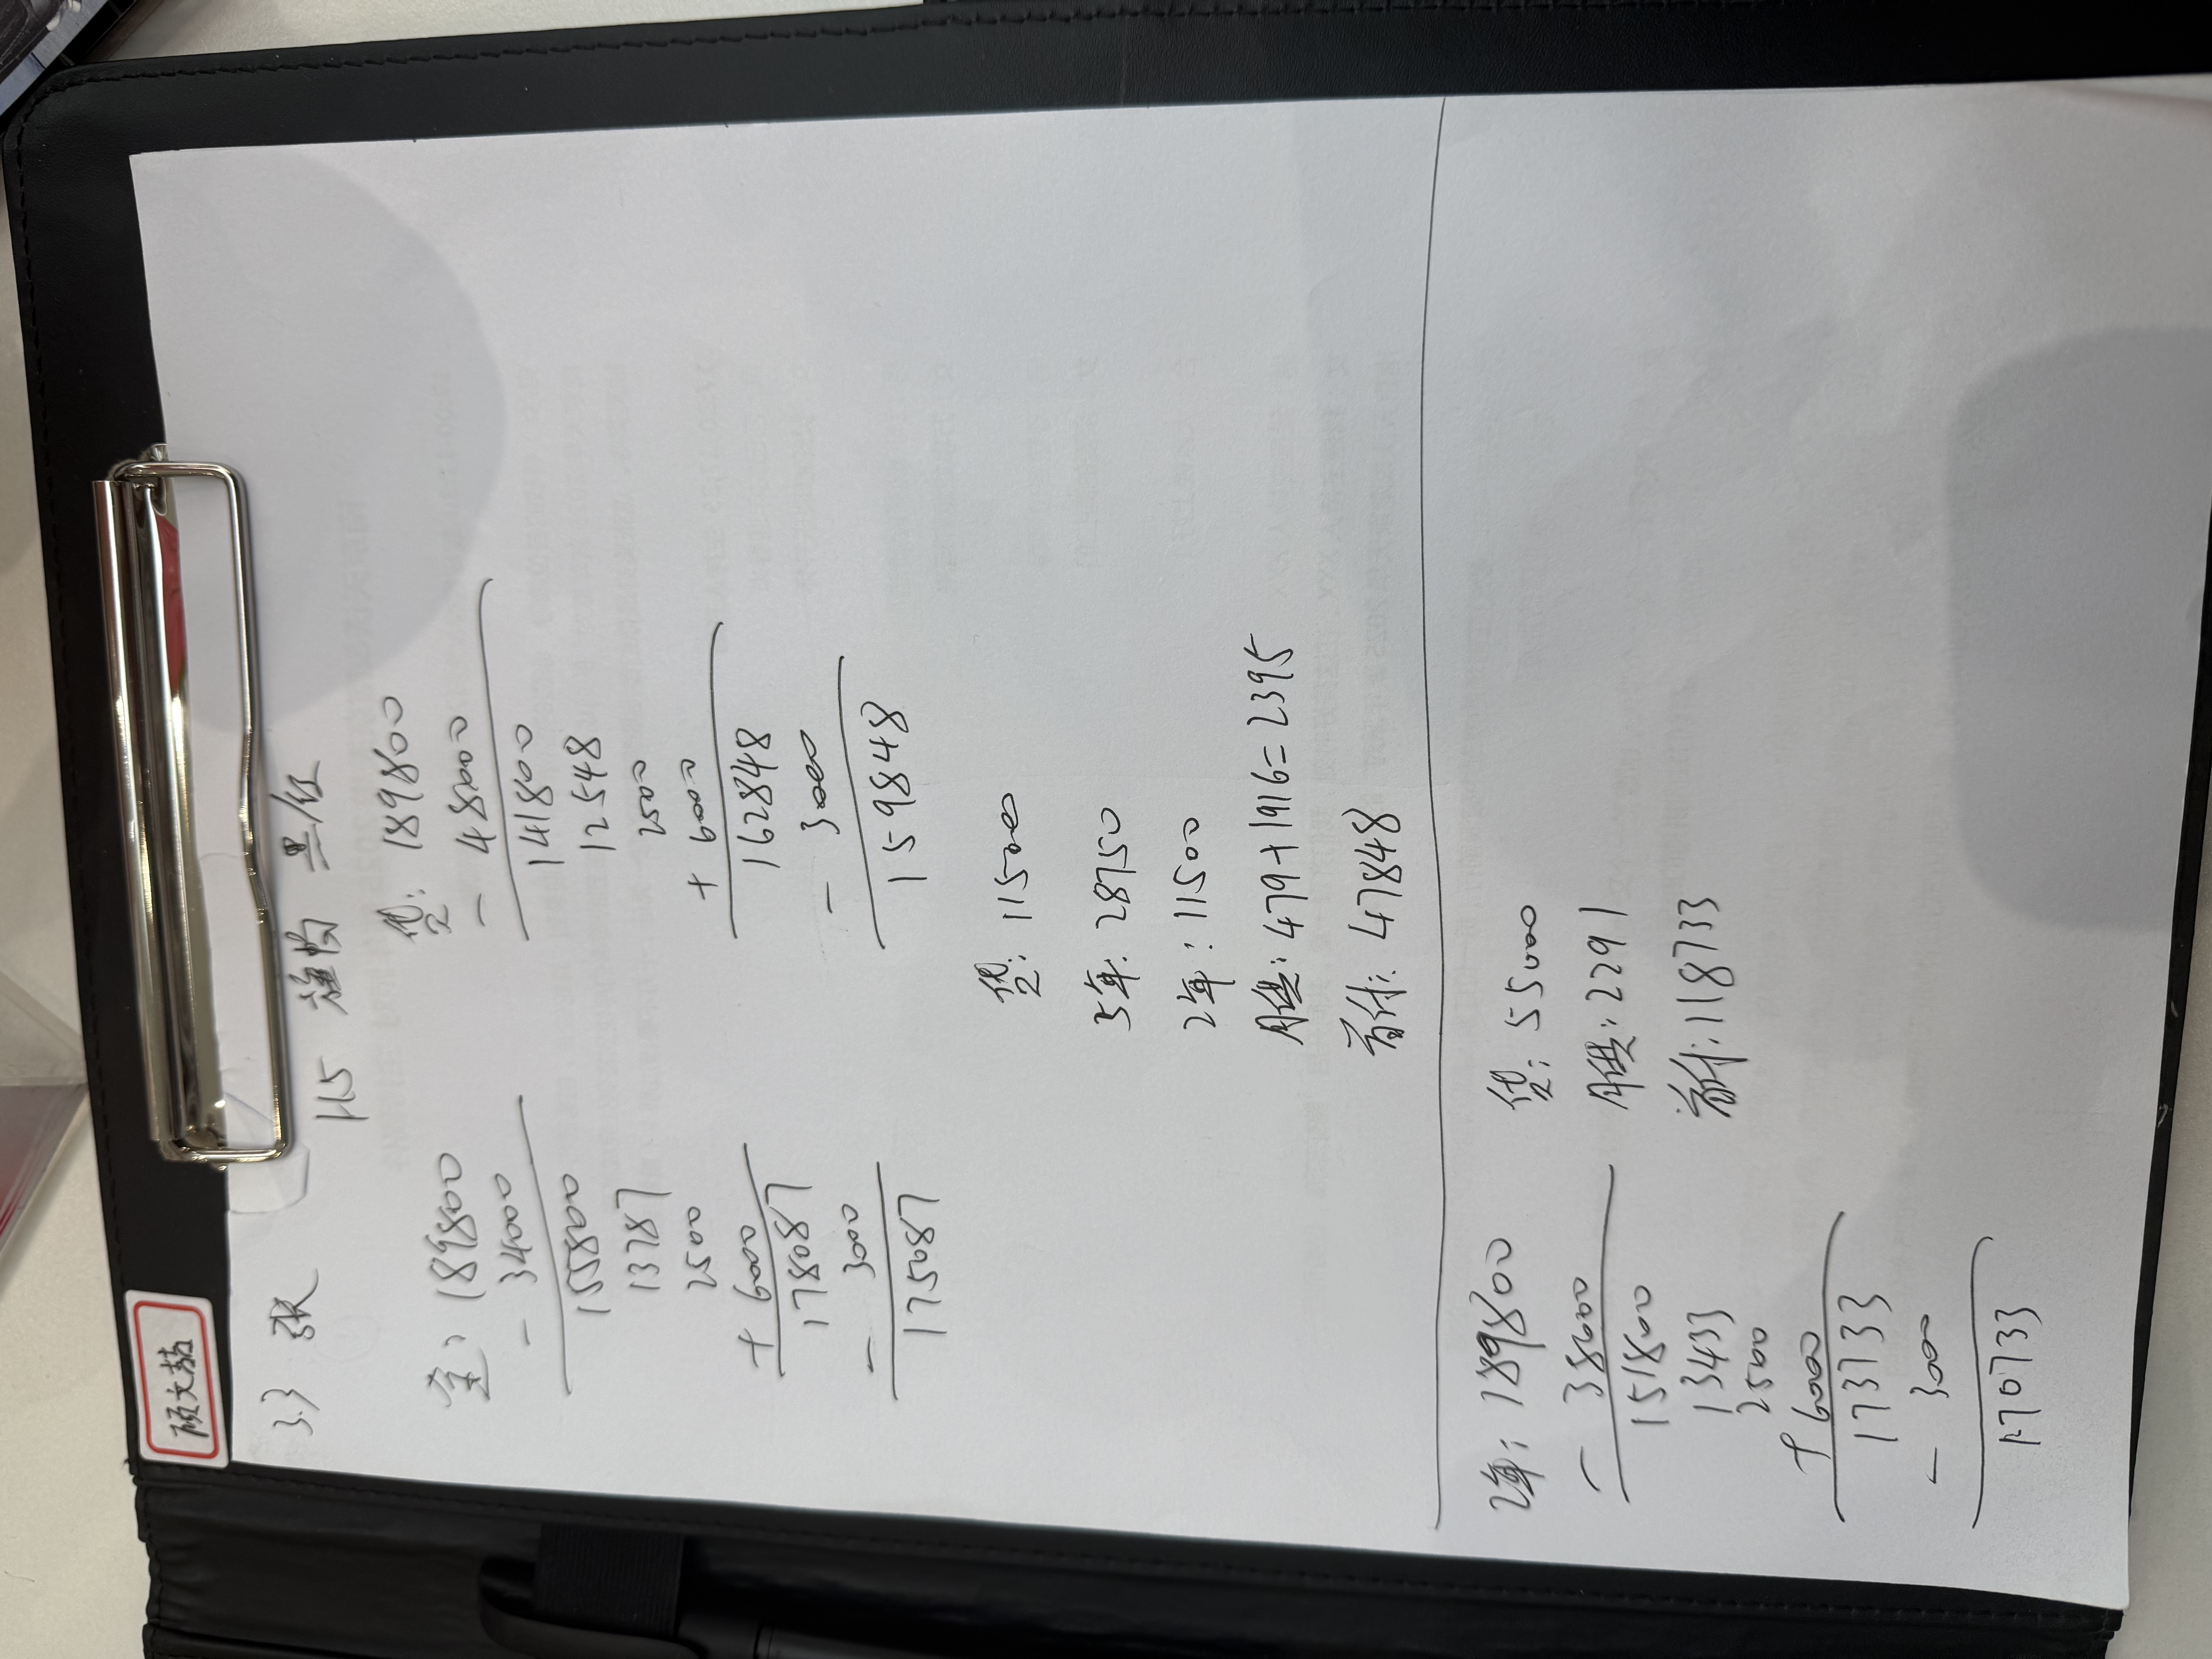 顾文喆
3.3 张 H5 旗内 黑/红
全: 189800
- 34000
155800
13787
2500
+ 6000
178087
- 3000
175087
贷: 189800
- 48000
141800
12548
2500
+ 6000
162848
- 3000
159848
贷: 115000
5年: 28750
2年: 11500
月供: 479+1916=2395
首付: 47848
2年: 189800
- 38000
151800
13433
2500
+ 6000
173733
- 3000
170733
贷: 55000
月供: 2291
首付: 118733